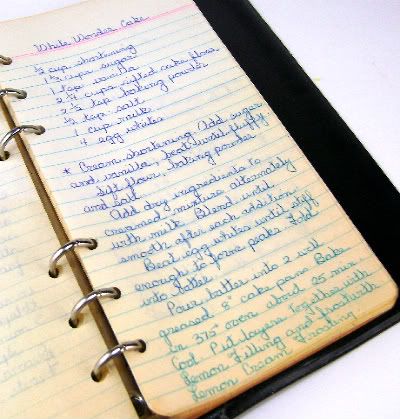 White Wonder Cake
1/2 cup shortening
1 1/2 cups sugar
1 tsp vanilla
2 1/4 cups sifted cake flour
2 1/2 tsp baking powder
1/2 tsp salt
1 cup milk
4 egg whites
* Cream shortening. Add sugar
and vanilla, beat until fluffy.
Sift flour, baking powder
and salt.
Add dry ingredients to
creamed mixture alternately
with milk. Blend until
smooth after each addition.
Beat egg whites until stiff
enough to form peaks. Fold
into batter.
Pour batter into 2 well
greased 8" cake pans. Bake
in 375° oven about 25 min.
Cool. Put layers together with
Lemon Filling and frost with
Lemon Cream Frosting.